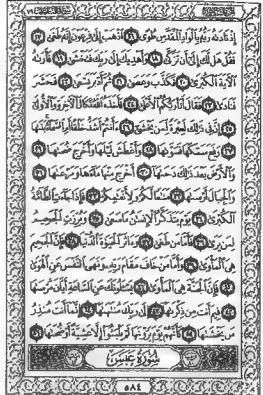 إِذْ نَادَىٰهُ رَبُّهُۥ بِٱلْوَادِ ٱلْمُقَدَّسِ طُوًى ١٦ ٱذْهَبْ إِلَىٰ فِرْعَوْنَ إِنَّهُۥ طَغَىٰ ١٧
فَقُلْ هَل لَّكَ إِلَىٰٓ أَن تَزَكَّىٰ ١٨ وَأَهْدِيَكَ إِلَىٰ رَبِّكَ فَتَخْشَىٰ ١٩ فَأَرَىٰهُ
ٱلْءَايَةَ ٱلْكُبْرَىٰ ٢٠ فَكَذَّبَ وَعَصَىٰ ٢١ ثُمَّ أَدْبَرَ يَسْعَىٰ ٢٢ فَحَشَرَ
فَنَادَىٰ ٢٣ فَقَالَ أَنَا۠ رَبُّكُمُ ٱلْأَعْلَىٰ ٢٤ فَأَخَذَهُ ٱللَّهُ نَكَالَ ٱلْءَاخِرَةِ وَٱلْأُولَىٰٓ
٢٥ إِنَّ فِى ذَٰلِكَ لَعِبْرَةً لِّمَن يَخْشَىٰٓ ٢٦ ءَأَنتُمْ أَشَدُّ خَلْقًا أَمِ ٱلسَّمَآءُ بَنَىٰهَا
٢٧ رَفَعَ سَمْكَهَا فَسَوَّىٰهَا ٢٨ وَأَغْطَشَ لَيْلَهَا وَأَخْرَجَ ضُحَىٰهَا ٢٩
وَٱلْأَرْضَ بَعْدَ ذَٰلِكَ دَحَىٰهَآ ٣٠ أَخْرَجَ مِنْهَا مَآءَهَا وَمَرْعَىٰهَا ٣١
وَٱلْجِبَالَ أَرْسَىٰهَا ٣٢ مَتَٰعًا لَّكُمْ وَلِأَنْعَٰمِكُمْ ٣٣ فَإِذَا جَآءَتِ ٱلطَّآمَّةُ
ٱلْكُبْرَىٰ ٣٤ يَوْمَ يَتَذَكَّرُ ٱلْإِنسَٰنُ مَا سَعَىٰ ٣٥ وَبُرِّزَتِ ٱلْجَحِيمُ
لِمَن يَرَىٰ ٣٦ فَأَمَّا مَن طَغَىٰ ٣٧ وَءَاثَرَ ٱلْحَيَوٰةَ ٱلدُّنْيَا ٣٨ فَإِنَّ ٱلْجَحِيمَ
هِىَ ٱلْمَأْوَىٰ ٣٩ وَأَمَّا مَنْ خَافَ مَقَامَ رَبِّهِۦ وَنَهَى ٱلنَّفْسَ عَنِ ٱلْهَوَىٰ
٤٠ فَإِنَّ ٱلْجَنَّةَ هِىَ ٱلْمَأْوَىٰ ٤١ يَسْـَٔلُونَكَ عَنِ ٱلسَّاعَةِ أَيَّانَ مُرْسَىٰهَا
٤٢ فِيمَ أَنتَ مِن ذِكْرَىٰهَآ ٤٣ إِلَىٰ رَبِّكَ مُنتَهَىٰهَآ ٤٤ إِنَّمَآ أَنتَ مُنذِرُ
مَن يَخْشَىٰهَا ٤٥ كَأَنَّهُمْ يَوْمَ يَرَوْنَهَا لَمْ يَلْبَثُوٓا۟ إِلَّا عَشِيَّةً أَوْ ضُحَىٰهَا ٤٦
سُورَةُ عَبَسَ
٥٨٤